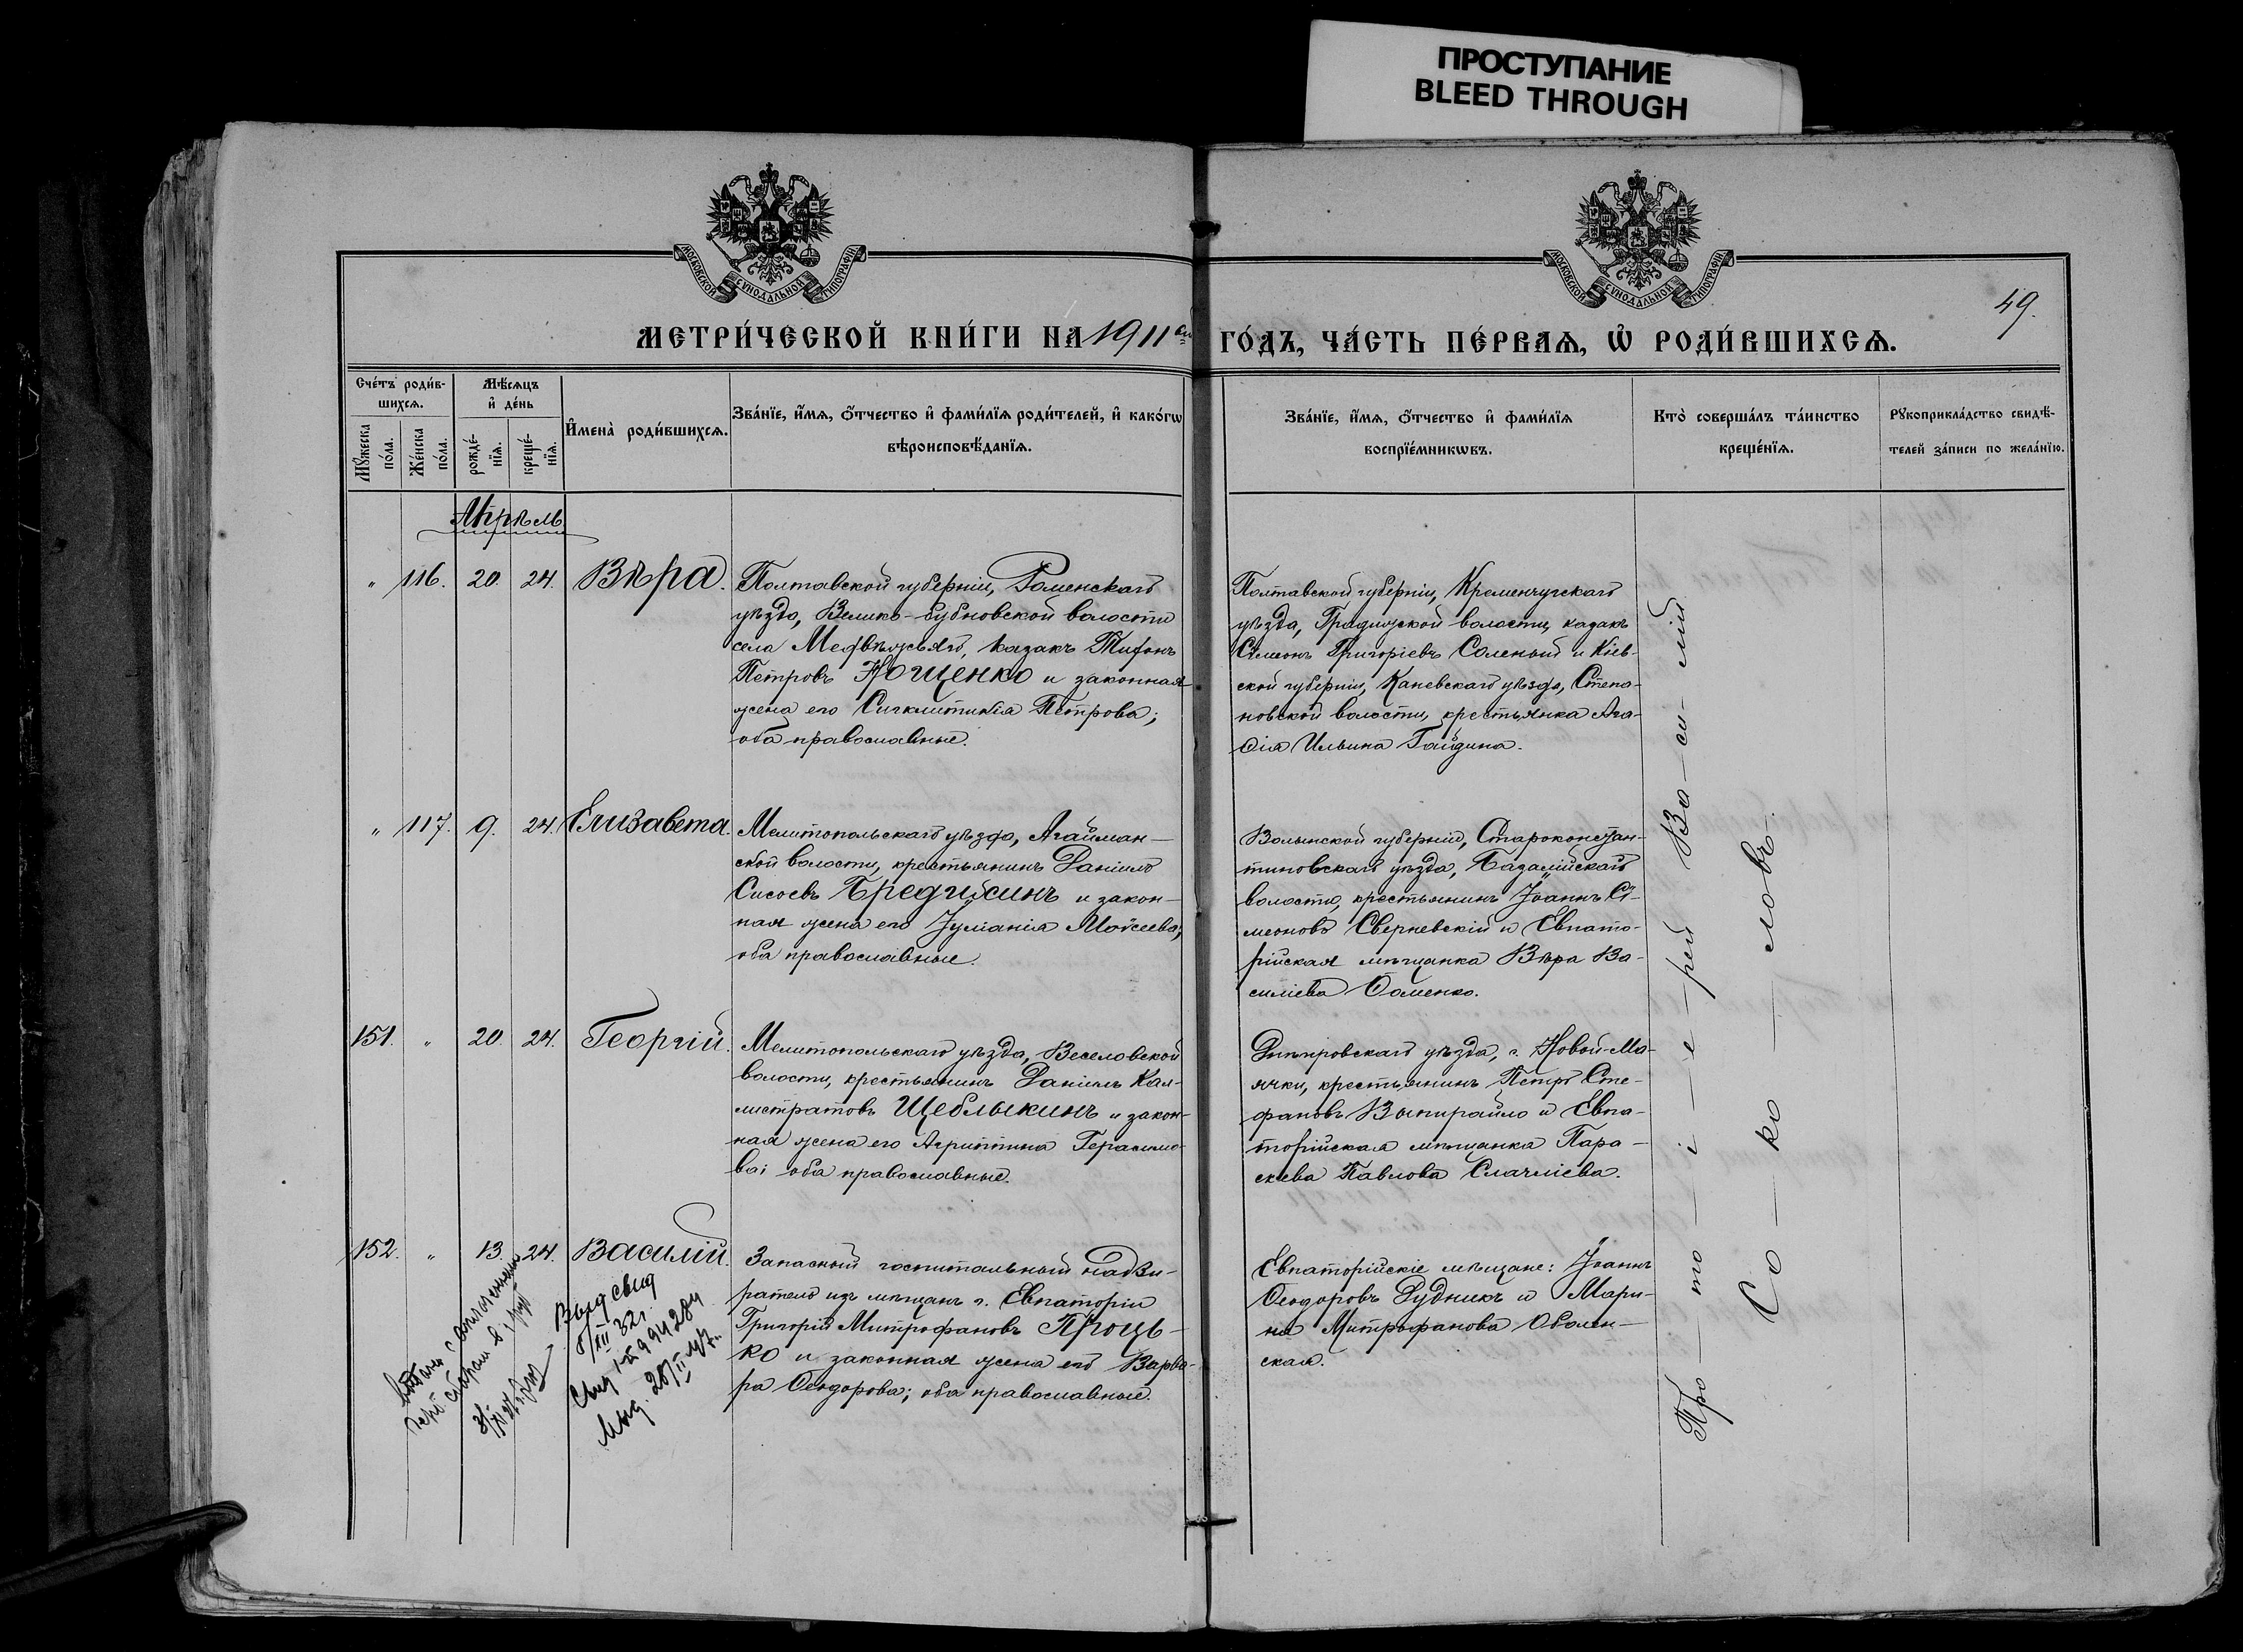 ПРОСТУПАНИЕ
BLEED THROUGH
МОСКОВСКОЙ СУНОДАЛЬНОЙ ТИПОГРАФІИ
МОСКОВСКОЙ СУНОДАЛЬНОЙ ТИПОГРАФІИ
49.
МЕТРИ́ЧЕСКОЙ КНИ́ГИ НА 1911 ГО́ДЪ, ЧА́СТЬ ПЕ́РВАѦ, Ѡ҆ РОДИ́ВШИХСѦ.
Сче́тъ роди́в-
шихсѧ.
Мѣ́сѧцъ
и҆ де́нь
Мꙋ́жеска
по́ла.
Же́нска
по́ла.
рожде́-
нїѧ.
креще́-
нїѧ.
И҆мена̀ роди́вшихсѧ.
Зва́нїе, и҆́мѧ, ѻ҆́тчество и҆ фами́лїѧ роди́телей, и҆ како́гѡ
вѣроисповѣ́данїѧ.
Зва́нїе, и҆́мѧ, ѻ҆́тчество и҆ фами́лїѧ
воспрїе́мникѡвъ.
Кто̀ соверша́лъ та́инство
креще́нїѧ.
Рꙋкоприкла́дство свидѣ́-
телей за́писи по жела́нїю.
Апрѣль
" 116. 20. 24. Вѣра.
Полтавской губерніи, Роменскаго
уѣзда, Велико-Бубновской волости
села казакъ Тифонъ
Петровъ Ющенко и законная
жена его Сигклитикія Петрова;
оба православные.
Полтавской губерніи, Кременчугскаго
уѣзда, Градижской волости, казакъ
Симеонъ Григоріевъ Соленый и Кіев-
ской губерніи, Каневскаго уѣзда, Степа-
новской волости, крестьянка Ага-
фія Ильина Гайдина.
" 117. 9. 24. Елизавета.
Мелитопольскаго уѣзда, Агайман-
ской волости, крестьянинъ Даніилъ
Сисоевъ Бредихинъ и закон-
ная жена его Іуліанія Моѵсеева;
оба православные.
Волынской губерніи, Староконстан-
тиновскаго уѣзда, Базалійской
волости, крестьянинъ Іоаннъ Си-
меоновъ Сверневскій и Евпато-
рійская мѣщанка Вѣра Ва-
силіева Фоменко.
151. " 20. 24. Георгій.
Мелитопольскаго уѣзда, Веселовской
волости, крестьянинъ Даніилъ Кал-
листратовъ Щеблыкинъ и закон-
ная жена его Агриппина Герасимо-
ва; оба православные.
Днѣпровскаго уѣзда, с. Новой-Ма-
ячки, крестьянинъ Петръ Сте-
фановъ Выпирайло и Евпа-
торійская мѣщанка Пара-
скева Павлова Слачліева.
152. " 13. 24. Василій.
Запасный госпитальный надзи-
ратель изъ мѣщанъ г. Евпаторіи
Григорій Митрофановъ Проць-
ко и законная жена его Варва-
ра Ѳеодорова; оба православные.
Евпаторійскіе мѣщане: Іоаннъ
Ѳеодоровъ Дудникъ и Мари-
на Митрофанова Оболен-
ская.
Про — то — і — е — рей Ва — си — лій
Со — ко — ловъ.
Выд свид
8/XII 32 г.